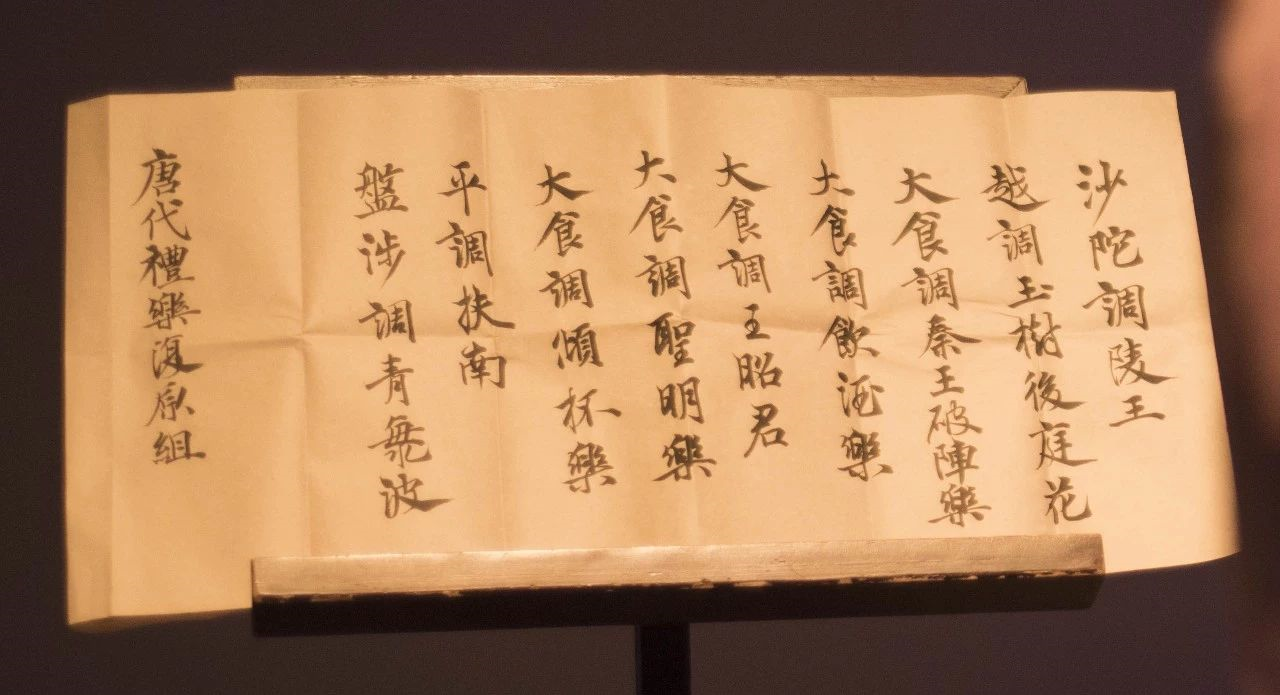 沙陀調陵王
越調玉樹後庭花
大食調秦王破陣樂
大食調飲酒樂
大食調王昭君
大食調聖明樂
大食調傾杯樂
平調扶南
盤涉調青海波
唐代禮樂復原組